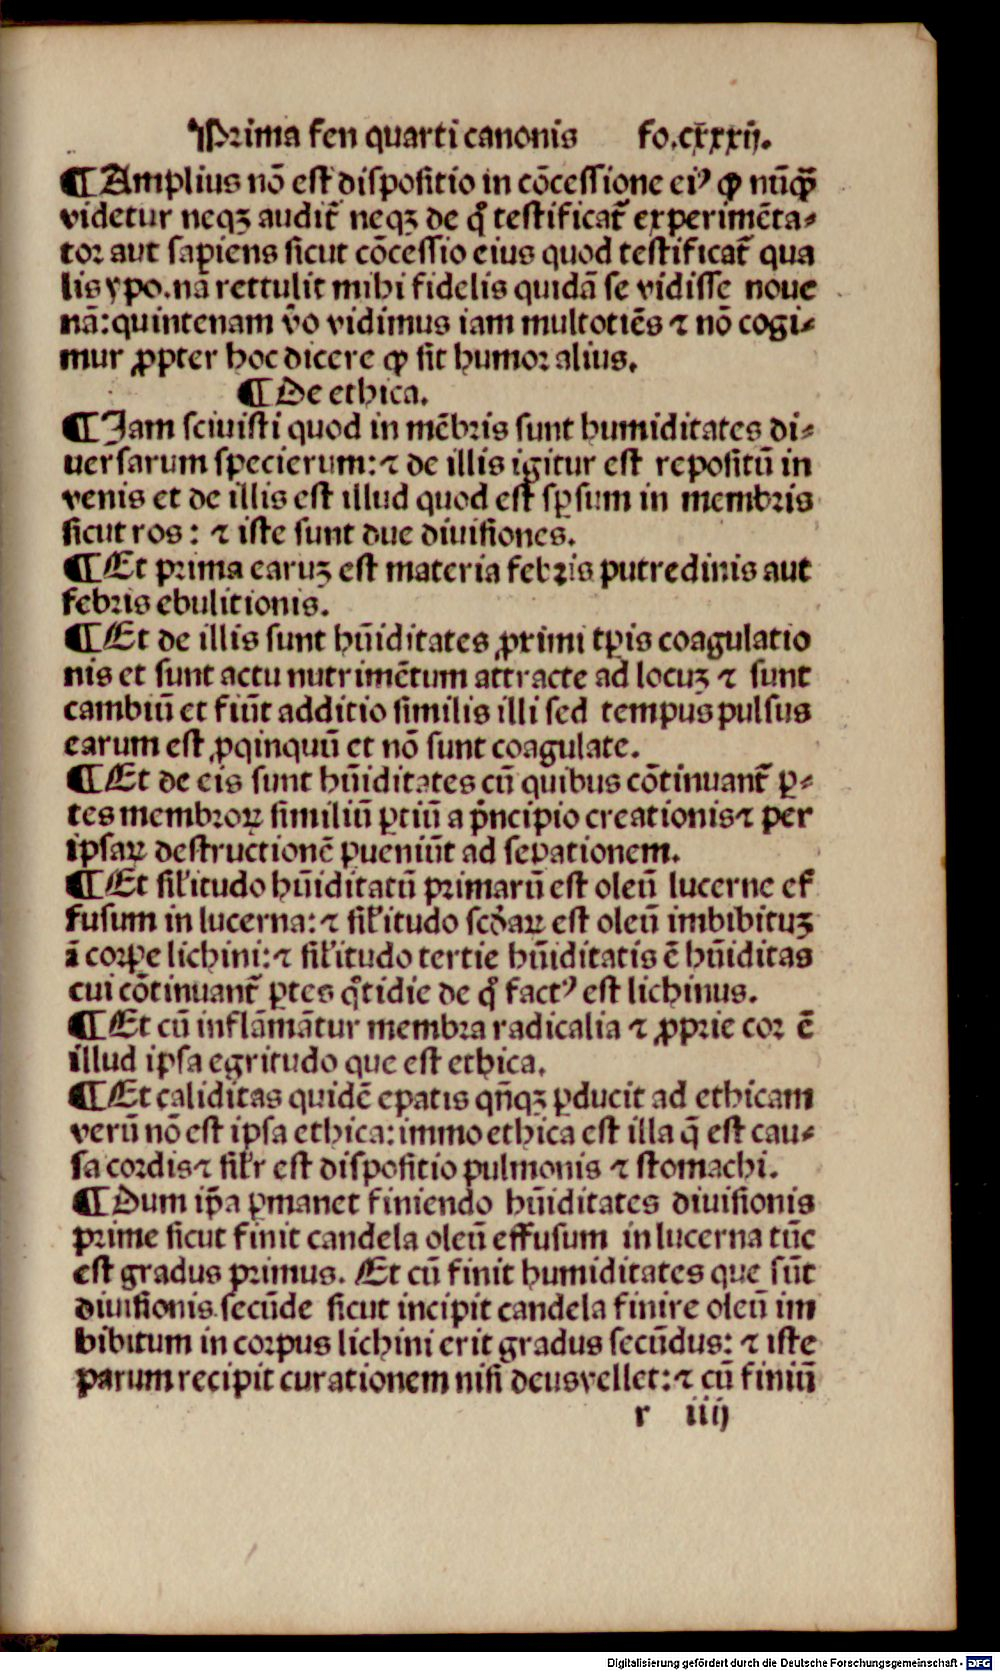 Prima fen quarti canonis fo.cxxxij.
¶ Amplius nō est dispositio in cōcessione eiꝰ ꝙ nūꝙ̄
videtur neqꝫ audit̄ neqꝫ de q̊ testificat̄ experimēta⸗
tor aut sapiens sicut cōcessio eius quod testificat̄ qua
lis ypo.nā rettulit mihi fidelis quidā se vidisse noue
nā:quintenam v̄o vidimus iam multotiēs ⁊ nō cogi⸗
mur ꝓpter hoc dicere ꝙ sit humor alius.
¶ De ethica.
¶ Jam sciuisti quod in mēbris sunt humiditates di⸗
uersarum specierum:⁊ de illis igitur est repositū in
venis et de illis est illud quod est sꝑsum in membris
sicut ros: ⁊ iste sunt due diuisiones.
¶ Et prima earuꝫ est materia febris putredinis aut
febris ebulitionis.
¶ Et de illis sunt hūiditates ꝓximi tꝑis coagulatio
nis et sunt actu nutrimētum attracte ad locuꝫ ⁊ sunt
cambiū et fiūt additio similis illi sed tempus pulsus
earum est ꝓqinquū et nō sunt coagulate.
¶ Et de eis sunt hūiditates cū quibus cōtinuant̄ ꝑ⸗
tes membroꝝ similiū ꝑtiū a p̄ncipio creationis⁊ per
ipsaꝝ destructionē ꝑueniūt ad seꝑationem.
¶ Et sil'itudo hūiditatū primarū est oleū lucerne ef
fusum in lucerna:⁊ sil'itudo scd̄aꝝ est oleū imbibituꝫ
ī corꝑe lichini:⁊ sil'itudo tertie hūiditatis ē hūiditas
cui cōtinuant̄ ꝑtes q̊tidie de q̊ factꝰ est lichinus.
¶ Et cū inflāmātur membra radicalia ⁊ ꝓprie cor ē
illud ipsa egritudo que est ethica.
¶ Et caliditas quidē epatis qn̄qꝫ ꝑducit ad ethicam
verū nō est ipsa ethica:immo ethica est illa q̄ est cau⸗
sa cordis⁊ sil'r est dispositio pulmonis ⁊ stomachi.
¶ Dum ip̄a ꝑmanet finiendo hūiditates diuisionis
prime sicut finit candela oleū effusum in lucerna tūc
est gradus primus. Et cū finit humiditates que sūt
diuisionis secūde sicut incipit candela finire oleū im
bibitum in corpus lichini erit gradus secūdus: ⁊ iste
parum recipit curationem nisi deus vellet:⁊ cū finiū
r iiij
Digitalisierung gefördert durch die Deutsche Forschungsgemeinschaft - DFG